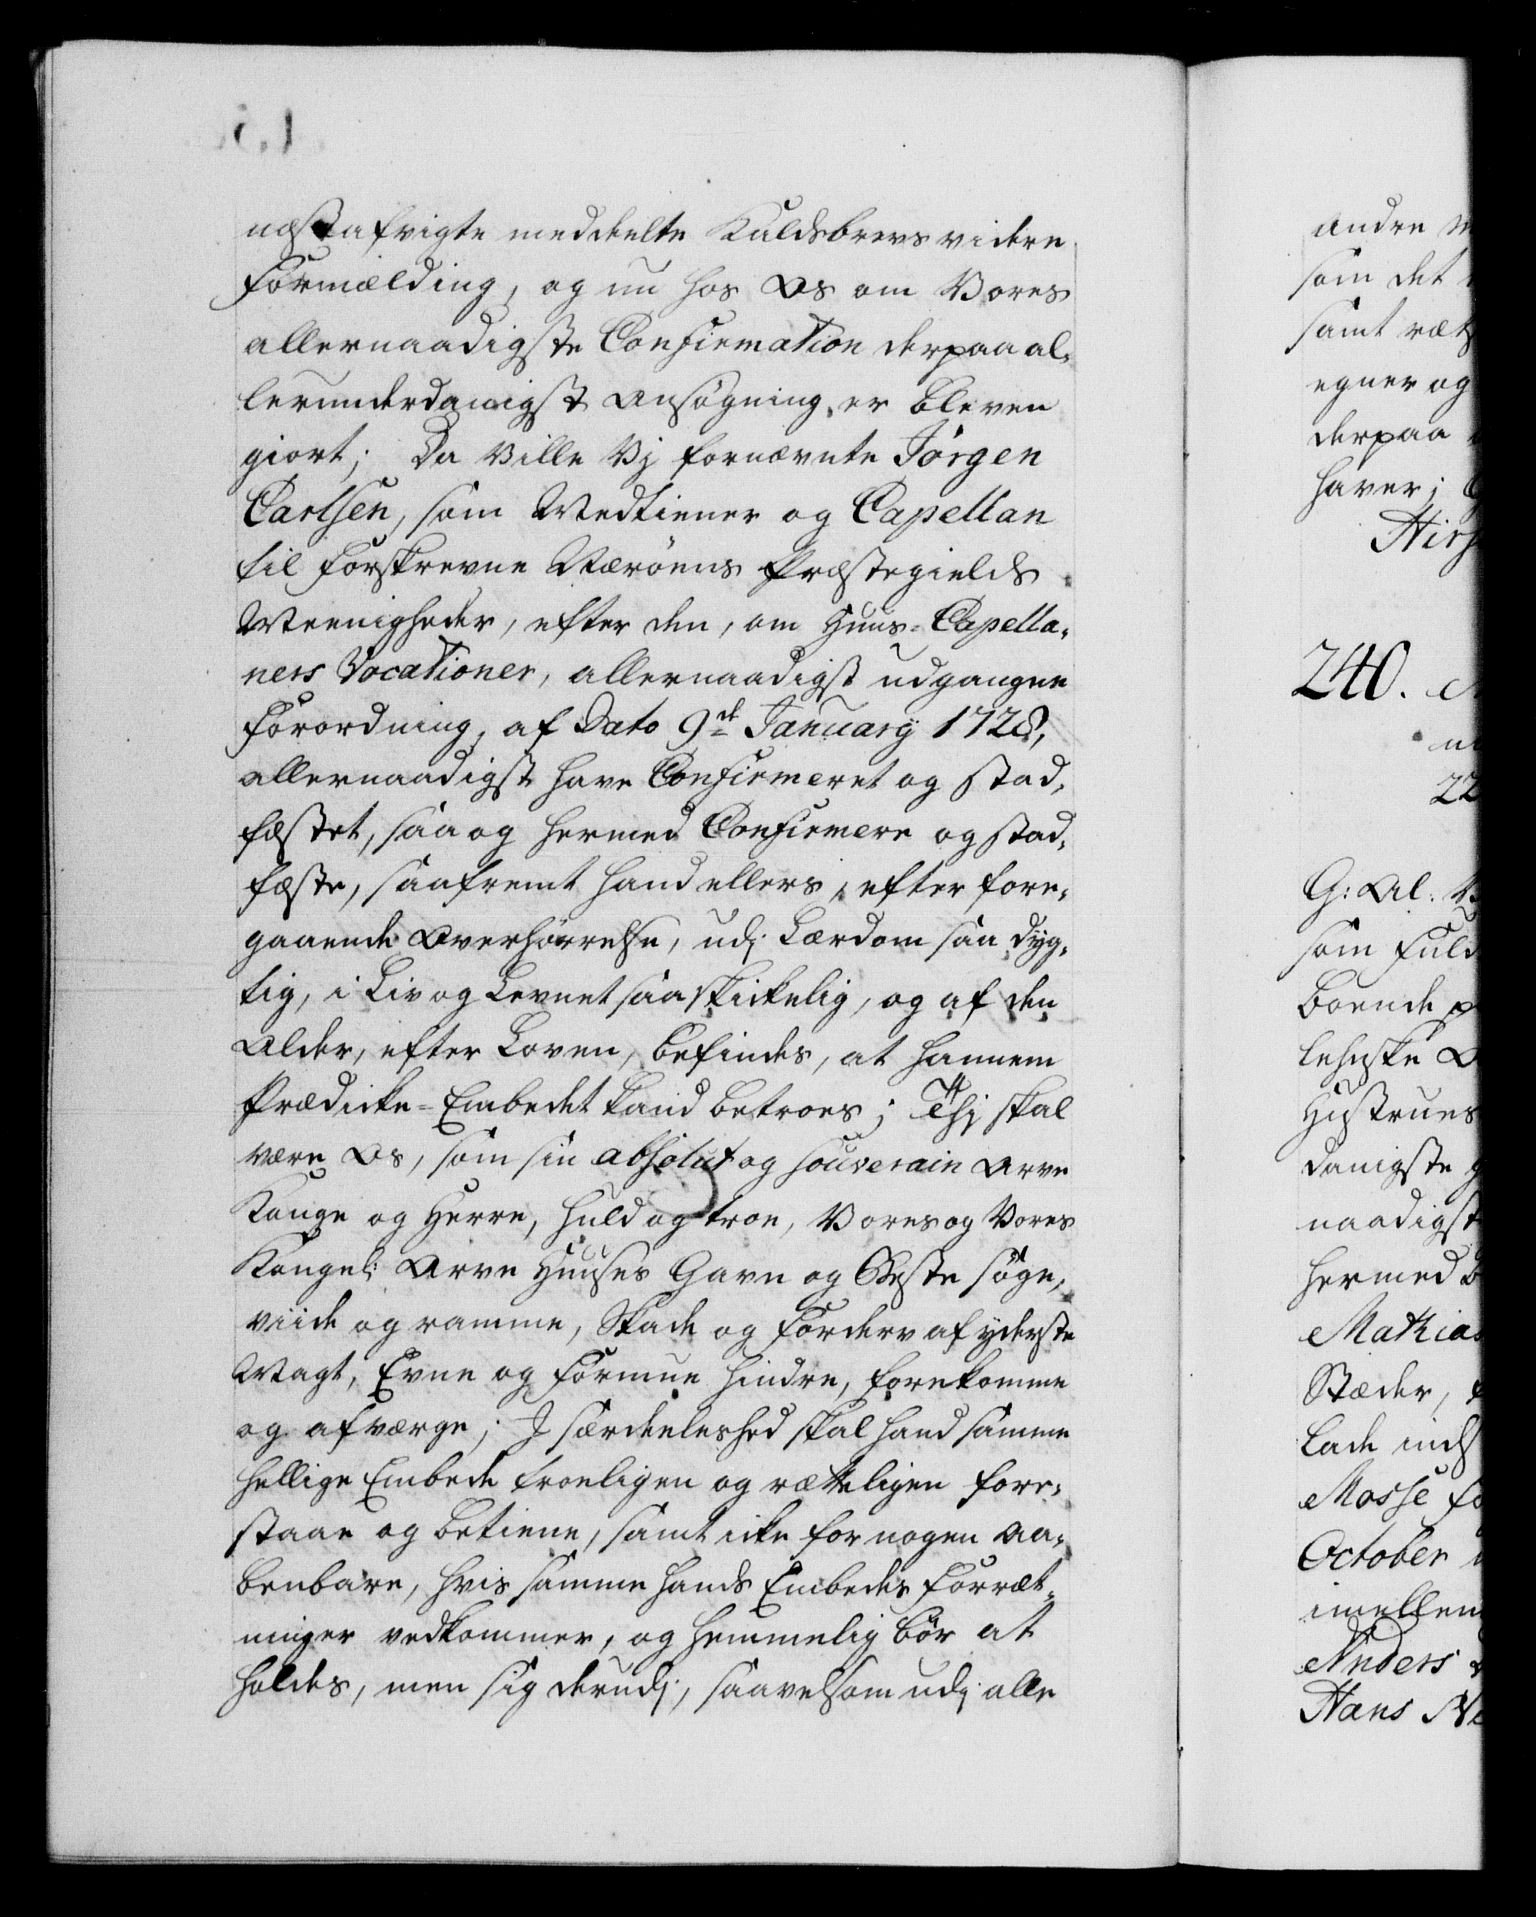 næstafvigte meddeelte Kaldsbrevs videre
Formælding, og nu hos Os om Vores
allernaadigste Confirmation derpaa al-
lerunderdanigst Ansøgning er bleven
giort; Da Ville Vj fornævnte Jörgen
Carlsen, som Medtiener og Capellan
til forskrevne Nærøens Præstegields
Meenigheder, efter den, om Huus-Capella-
ners Vocationer, allernaadigst udgangne
Forordning, af Dato 9de January 1728,
allernaadigst have Confirmeret og stad-
fæstet, saa og hermed Confirmere og stad-
fæste, saafremt hand ellers, efter fore-
gaaende Overhørrelse, udj Lærdom saa dyg-
tig, i Liv og Levnet saa skickelig, og af den
Alder, efter Loven, befindes, at hannem
Prædicke-Embedet kand betroes; Thj skal
være Os, som sin absolut og souverain Arve
Konge og Herre, huld og troe, Vores og Vores
Kongel: Arve Huuses Gavn og Beste søge,
viide og ramme, Skade og Forderv af yderste
Magt, Evne og Formue hindre, forekomme
og afværge; J særdeeleshed skal hand samme
hellige Embede troeligen og rætteligen fore-
staae og betiene, samt icke for nogen aa-
benbare, hvis samme hands Embedes Forræt-
ninger vedkommer, og hemmelig bör at
holdes, men sig derudj, saavelsom udj alle
andre
som det
samt
egner og
derpaa
haver;
240.
22
G: Al:
som
boende
Hustrues
danigste
naadigst
hermed
Mathias
Stæder,
lade
Mosse
October
imellem
Anders
Hans